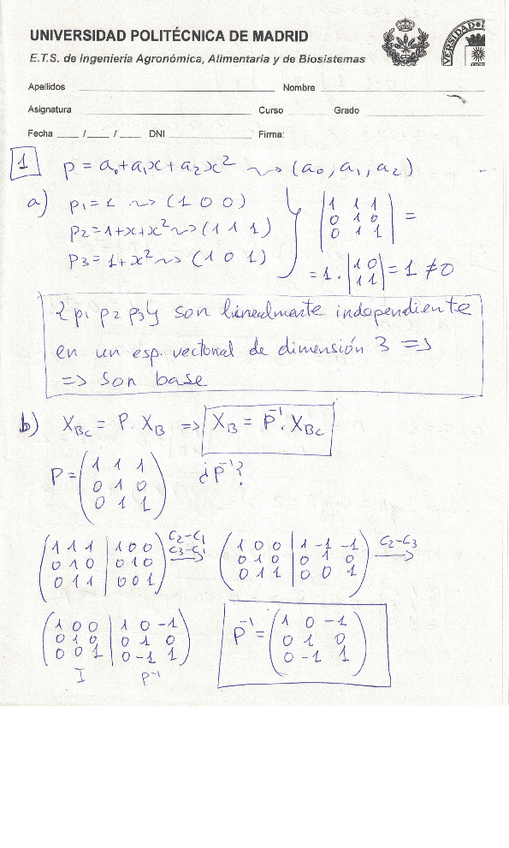 UNIVERSIDAD POLITÉCNICA DE MADRID
E.T.S. de Ingeniería Agronómica, Alimentaria y de Biosistemas
Apellidos Nombre
Asignatura Curso Grado
Fecha ___ /___ /___ DNI Firma:
1 p = a₀+a₁x+a₂x² ⇝ (a₀, a₁, a₂)
a) p₁ = 1 ⇝ (1 0 0)
p₂ = 1+x+x² ⇝ (1 1 1)
p₃ = 1+x² ⇝ (1 0 1)
|1 1 1|
|0 1 0| =
|0 1 1|
= 1 · |1 0| = 1 ≠ 0
|1 1|
{p₁ p₂ p₃} son linealmente independiente
en un esp. vectorial de dimensión 3 =>
=> son base
b) X_Bc = P · X_B => X_B = P⁻¹ · X_Bc
P = (1 1 1) ¿P⁻¹?
(0 1 0)
(0 1 1)
(1 1 1 | 1 0 0) C₂-C₁ (1 0 0 | 1 -1 -1) C₂-C₃
(0 1 0 | 0 1 0) C₃-C₁ → (0 1 0 | 0 1 0) →
(0 1 1 | 0 0 1) (0 1 1 | 0 0 1)
(1 0 0 | 1 0 -1) P⁻¹ = (1 0 -1)
(0 1 0 | 0 1 0) (0 1 0)
(0 0 1 | 0 -1 1) (0 -1 1)
I P⁻¹